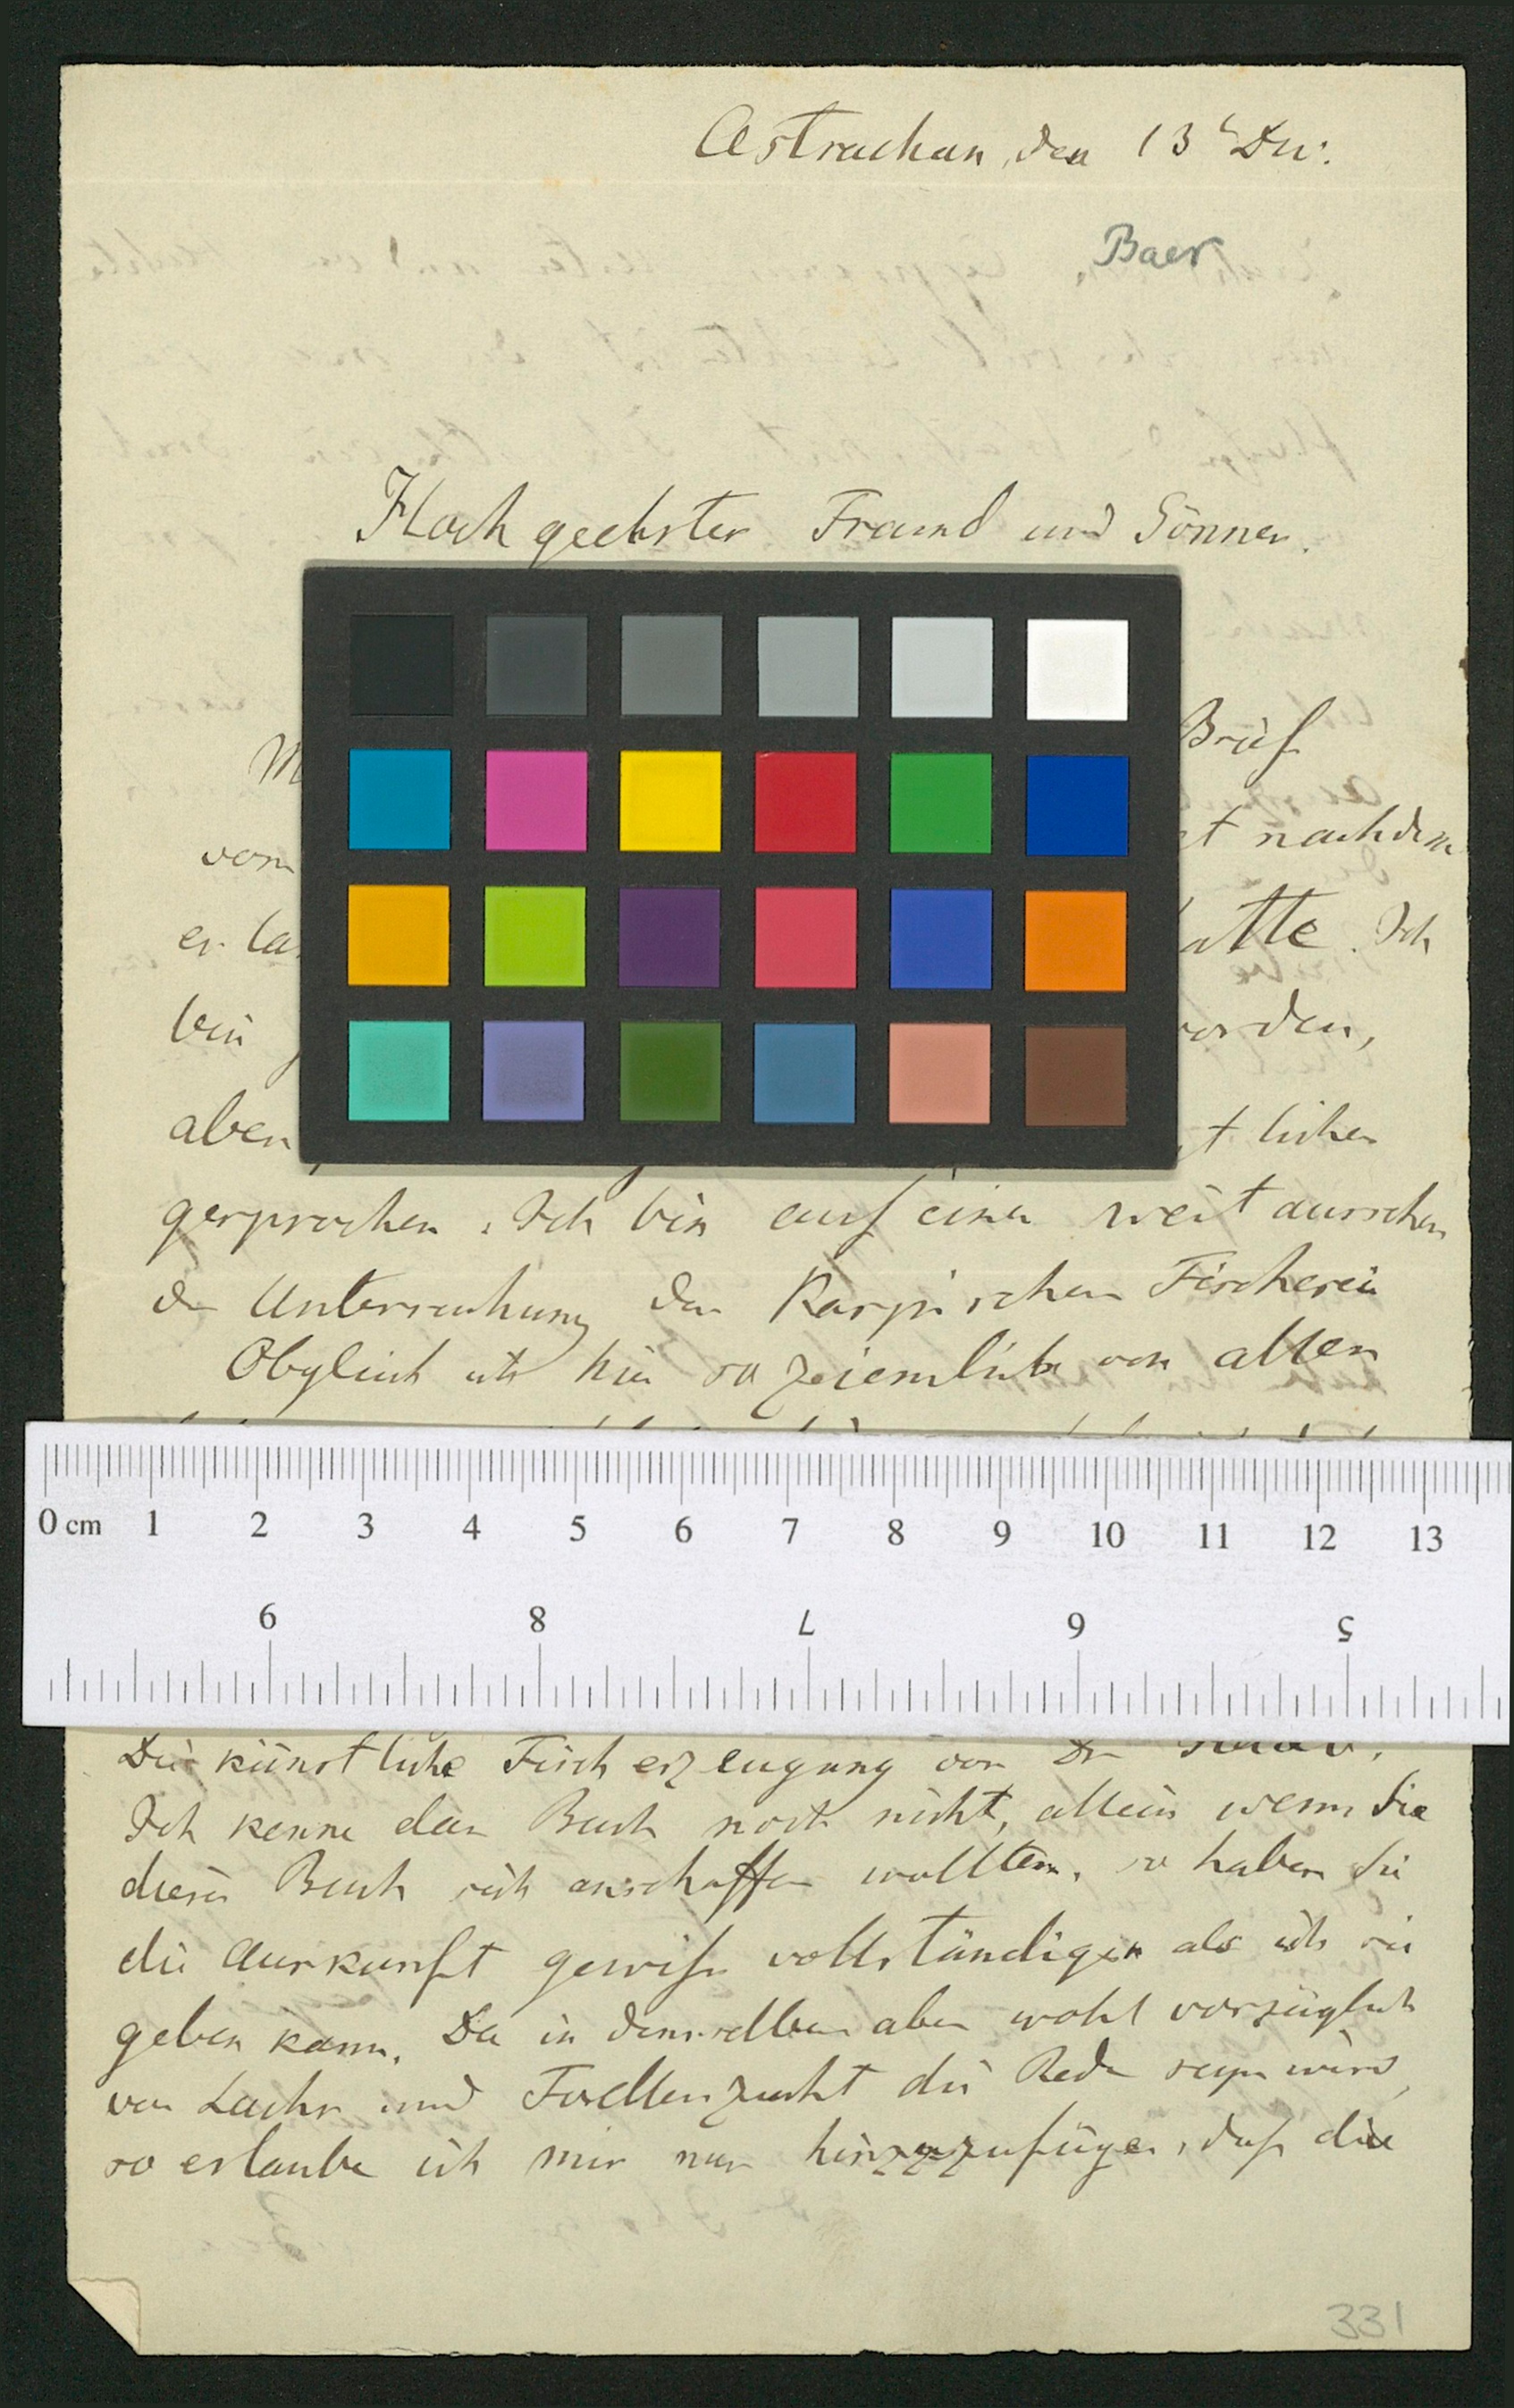 Astrachan, den 13t Dec.
Baer
Hochgeehrter Freund und Gönner.
Brief
vom
nachdem
er
atte. Ich
bin
orden,
aber
tlicher
gesprochen. Ich bin auf einer weit aussehen
der Untersuchung der Kaspischen Fischerei
Obgleich ich hier so ziemlich von allen
0 cm 1 2 3 4 5 6 7 8 9 10 11 12 13
9 8 7 6 5
Die künstliche Fischerzeugung von Dr
Ich kenne das Buch noch nicht, allein wenn Sie
dieses Buch sich anschaffen wollten, so haben Sie
die Auskunft gewiß vollständiger als ich sie
geben kann. Da in demselben aber wohl vorzüglich
von Lachs und Forellenzucht die Rede seyn wird,
so erlaube ich mir nur hinzuzufügen, daß die
331